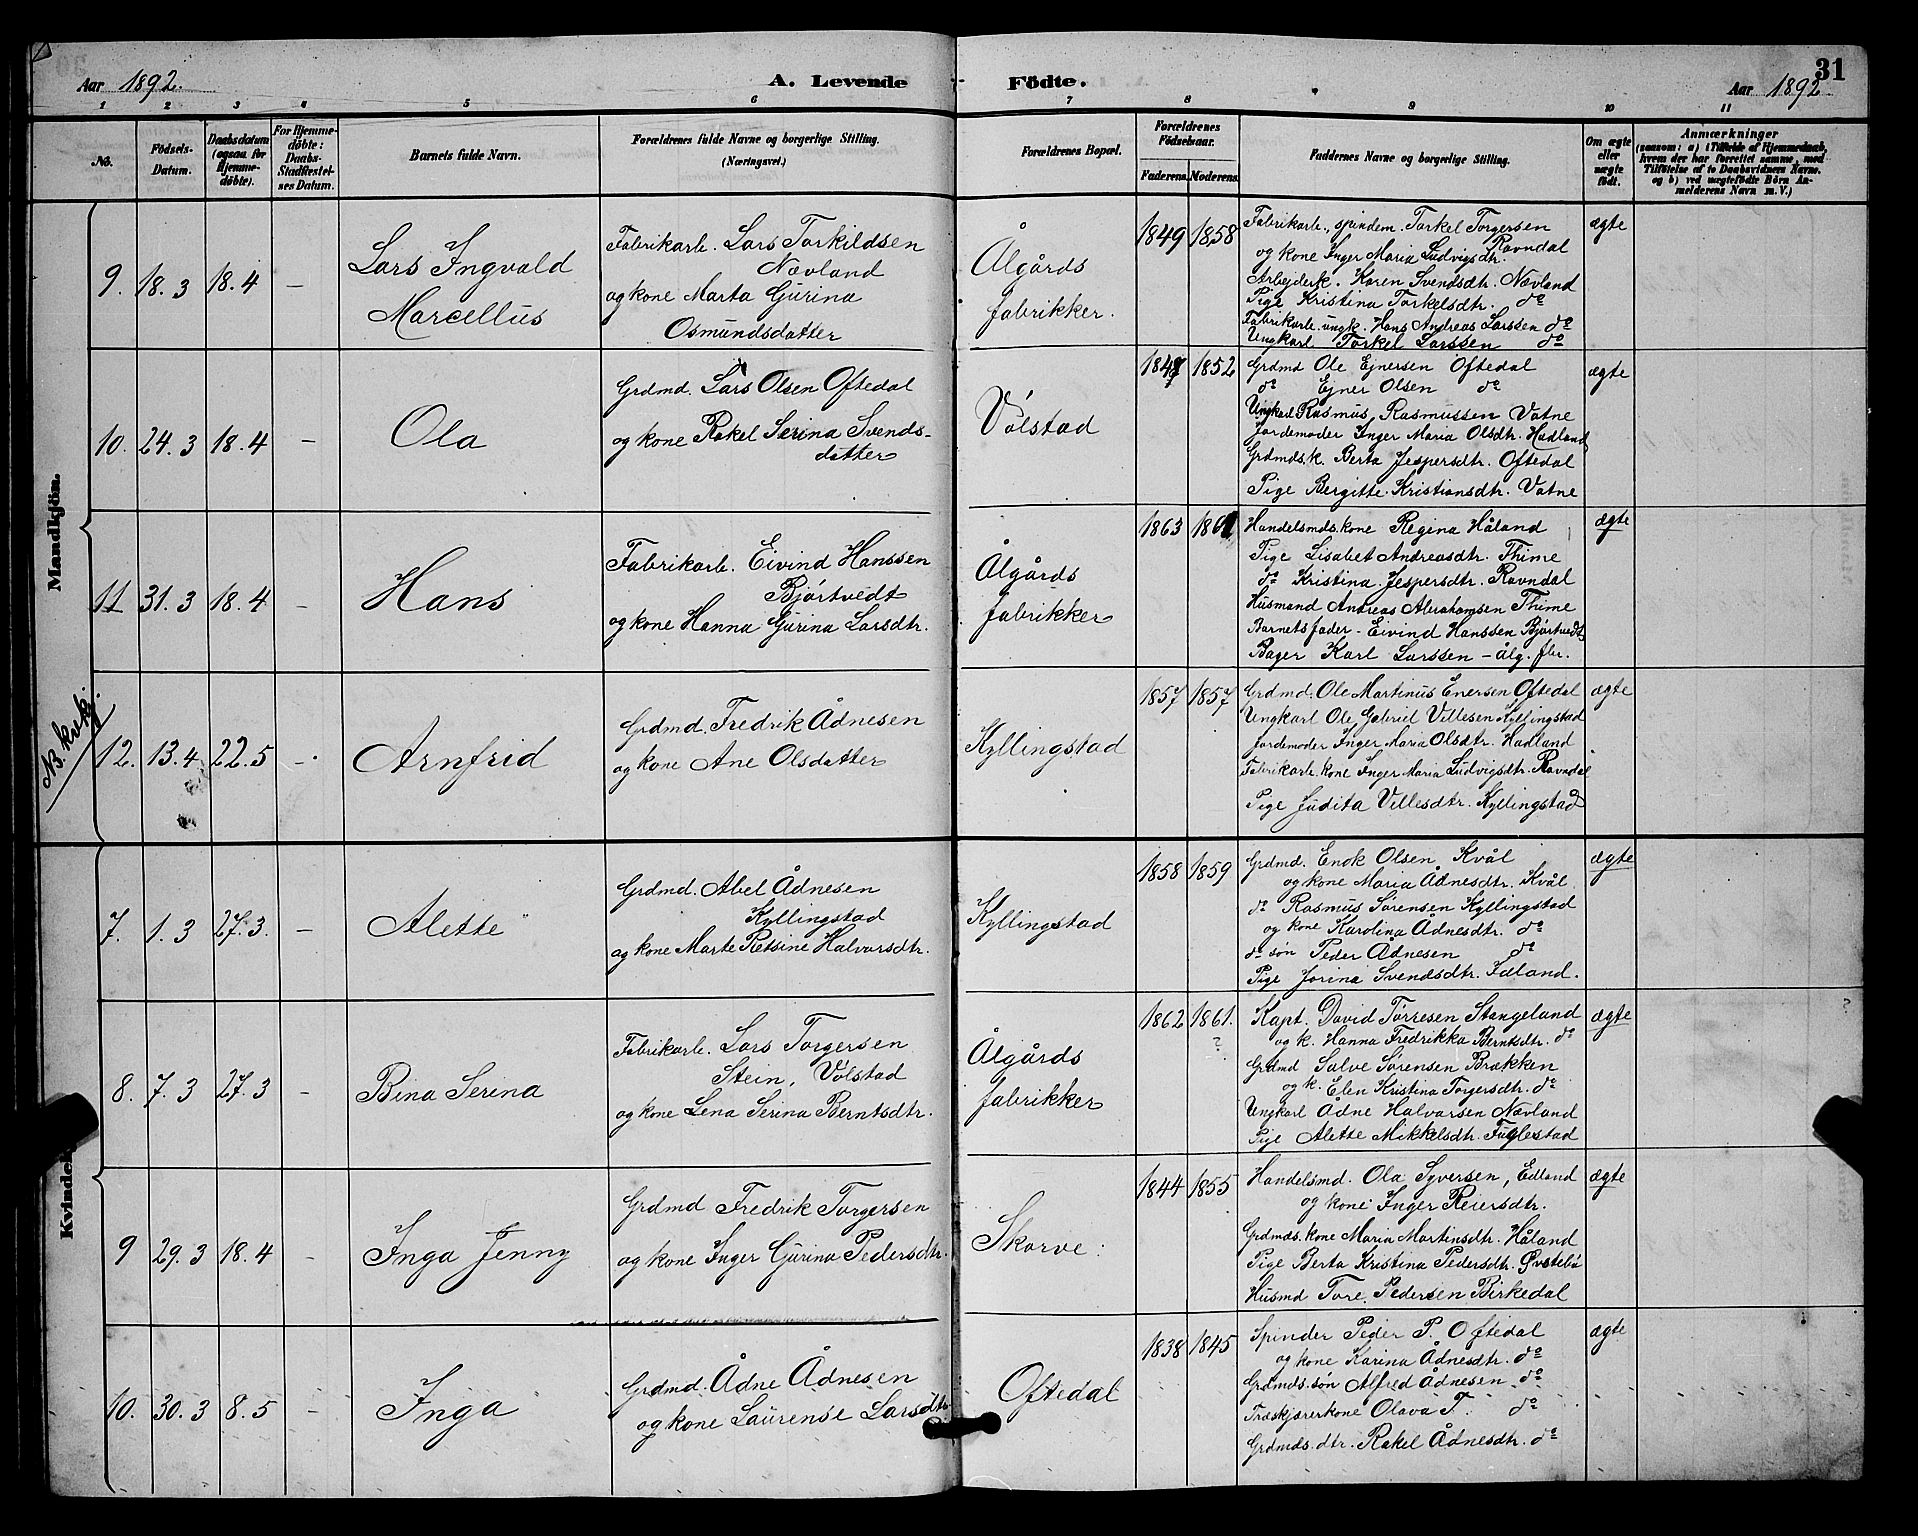 31
Aar 1892. A. Levende Födte. Aar 1892
1 2 3 4 5 6 7 8 9 10 11
No. Födsels-Datum. Daabsdatum (ogsaa for Hjemme-döbte). For Hjemme-döbte: Daabs-Stadfæstel-ses Datum. Barnets fulde Navn. Forældrenes fulde Navne og borgerlige Stilling. (Næringsvei.) Forældrenes Bopæl. Forældrenes Födselsaar. Faderens. Moderens. Faddernes Navne og borgerlige Stilling. Om ægte eller uægte födt. Anmærkninger (saasom: a) i Tilfælde af Hjemmedaab, hvem der har forrettet samme, med Tilföielse af to Daabsvidners Navne. og b) ved uægtefödte Börn An-melderens Navn m. V.)
Mandkjön.
9. 18.3 18.4 –
Lars Ingvald
Marcellus
Fabrikarb. Lars Torkildsen
Nævland
og kone Marta Gurina
Osmundsdatter
Ålgårds
fabrikker.
1849 1858
Fabrikarb., spindem. Torkel Torgersen
og kone Inger Maria Ludvigsdtr. Ravndal
Arbejderk. Karen Svendsdtr. Nævland
Pige Kristina Torkelsdtr. do
Fabrikarb. ungk. Hans Andreas Larssen do
Ungkarl Torkel Larssen do
ægte
10. 24.3 18.4 –
Ola
Grdmd. Lars Olsen Oftedal
og kone Rakel Serina Svends-
datter
Vølstad
1852
Grdmd Ole Ejnersen Oftedal
do Ejner Olsen do
Ungkarl Rasmus Rasmussen Vatne
Jordemoder Inger Maria Olsdtr. Hadland
Grdmds.k. Berta Jespersdtr. Oftedal
Pige Bergitte Kristiansdtr. Vatne
ægte
11 31.3 18.4 –
Hans
Fabrikarb. Eivind Hanssen
Bjørtvedt
og kone Hanna Gurina Larsdtr.
Ålgårds
fabrikker
1863
Handelsmds.kone Regina Håland
Pige Lisabet Andreasdtr. Thime
do Kristina Jespersdtr. Ravndal
Husmand Andreas Abrahamsen Thime
Barnets fader – Eivind Hanssen Bjørtvedt
Bager Karl Larssen – Ålg. fbr.
ægte
NB. kvkj.
12. 13.4 22.5 –
Arnfrid
Grdmd. Fredrik Ådnesen
og kone Ane Olsdatter
Kyllingstad
1857 1857
Grdmd. Ole Martinus Enersen Oftedal
Ungkarl Ole Gabriel Villesen Kyllingstad
Jordemoder Inger Maria Olsdtr. Hadland
Fabrikarb. kone Inger Maria Ludvigsdtr. Ravndal
Pige Judita Villesdtr. Kyllingstad
ægte
7. 1.3 27.3. –
Alette
Grdmd. Abel Ådnesen
Kyllingstad
og kone Marte Retsine Halvarsdtr.
Kyllingstad
1858 1859
Grdmd. Enok Olsen Kvål
og kone Maria Ådnesdtr. Kvål
do Rasmus Sørensen Kyllingstad
og kone Karolina Ådnesdtr. do
do søn Peder Ådnesen do
Pige Jorina Svendsdtr. Edland.
ægte
8. 7.3 27.3 –
Bina Serina
Fabrikarb. Lars Torgersen
Stein, Vølstad
og kone Lena Serina Berntsdtr.
Ålgårds
fabrikker
1862 1861.
?
Kapt. David Tørresen Stangeland
og k. Hanna Fredrikka Berntsdtr. do
Grdmd Salve Sørensen Brækken
og k. Elen Kristina Torgersdtr. do
Ungkarl Ådne Halvarsen Nævland
Pige Alette Mikkelsdtr. Fuglestad
ægte
?
Kvindek
9 29.3 18.4 –
Inga Jenny
Grdmd Fredrik Torgersen
og kone Inger Gurina Pedersdtr.
Skorve.
1844 1855
Handelsmd. Ola Syversen, Edland
og kone Inger Reiersdtr.
Grdmds. kone Maria Martinsdtr. Håland
Pige Berta Kristina Pedersdtr. Østebø
Husmd Tore Pedersen Birkedal
ægte
10. 30.3 8.5 –
Inga
Grdmd. Ådne Ådnesen
og kone Laurense Larsdtr
Oftedal
1838 1845
Spinder Peder P. Oftedal
og kone Karina Ådnesdtr. do
Grdmds. søn Alfred Ådnesen do
Træskjærerkone Olava T. do
Grdmds. dtr. Rakel Ådnesdtr. do
ægte